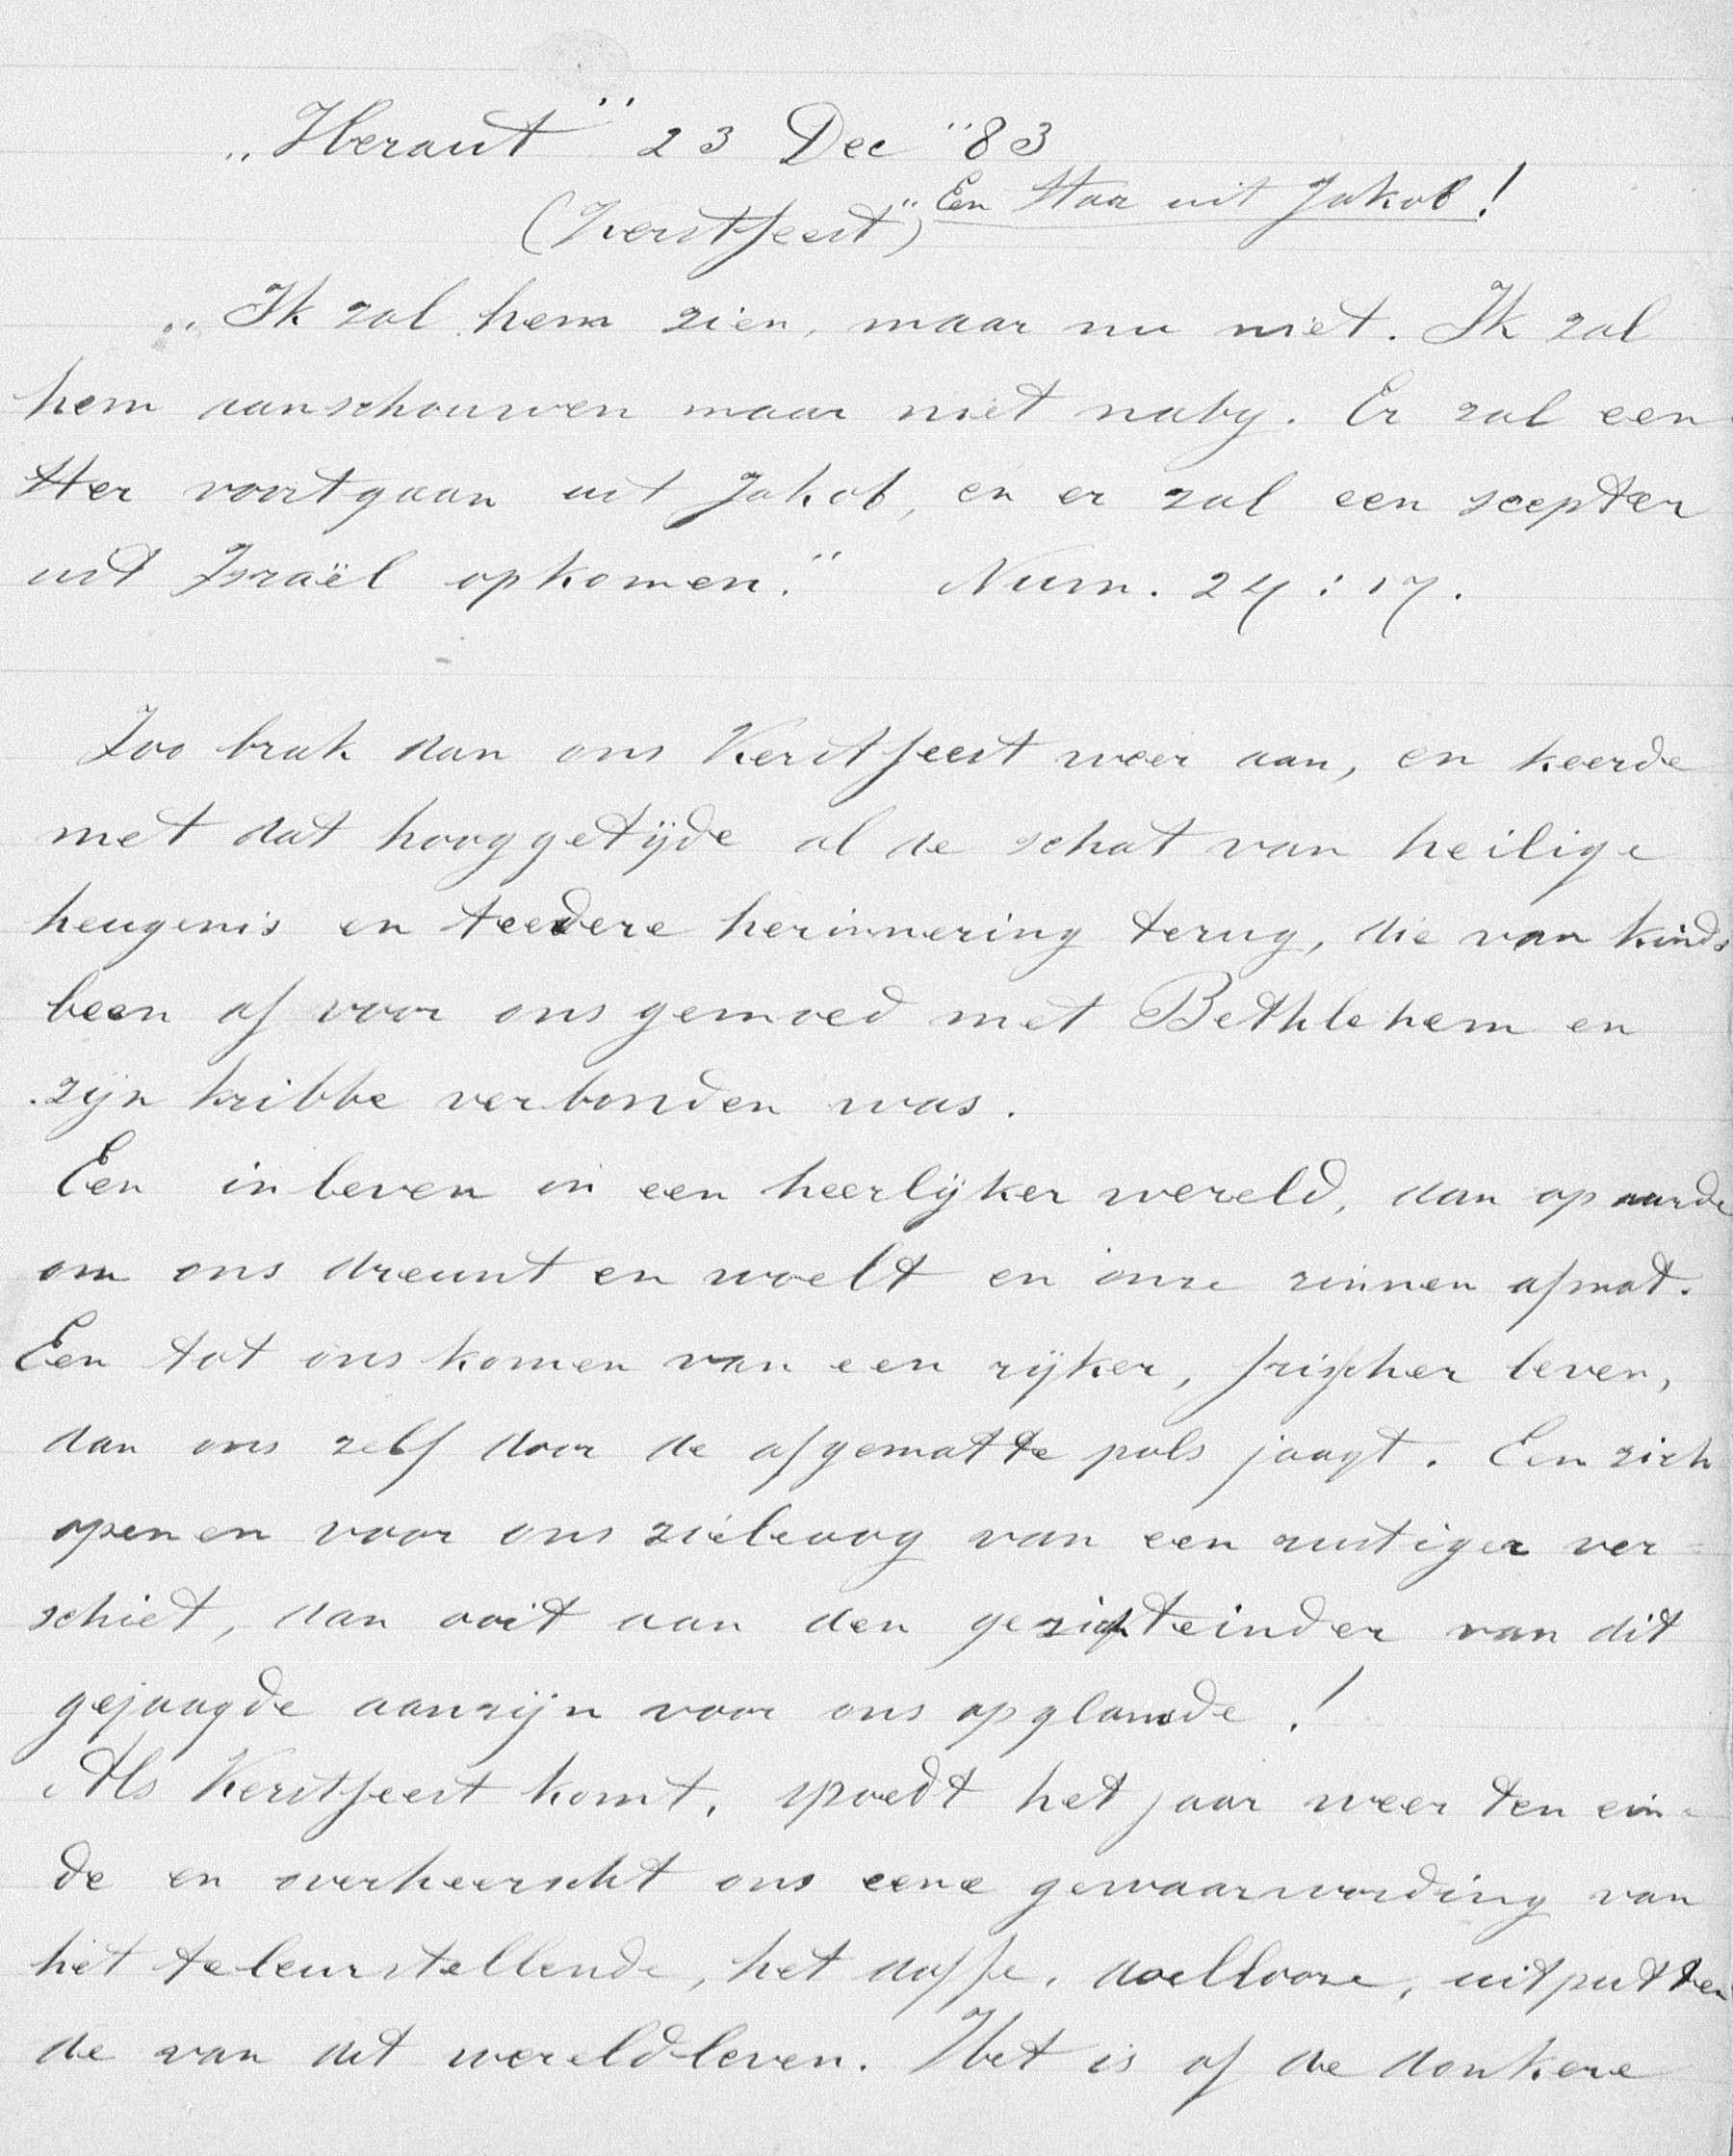 „Heraut" 23 Dec "83
(Kerstfeest") Een Star uit Jakob!
„Ik zal hem zien, maar nu niet. Ik zal
hem aanschouwen maar niet naby. Er zal een
Ster voortgaan uit Jakob, en er zal een scepter
uit Israël opkomen." Num. 24:17.
Zoo brak dan ons Kerstfeest weer aan, en keerde
met dat hooggetijde al de schat van heilige
heugenis en teedere herinnering terug, die van kinds
been af voor ons gemoed met Bethlehem en
zijn kribbe verbonden was.
Een inleven in een heerlijker wereld, dan op aarde
om ons dreunt en woelt en onze zinnen afmat.
Een tot ons komen van een rijker, frisscher leven,
dan ons zelf door de afgematte pols jaagt. Een zich
openen voor ons zieleoog van een rustiger ver=
schiet, dan ooit aan den gezichteinder van dit
gejaagde aanzijn voor ons opglansde!
Als Kerstfeest komt, spoedt het jaar weer ten ein=
de en overheerscht ons eene gewaarwording van
het teleurstellende, het doffe, doellooze, uitputten
de van dit wereldleven. Het is of de donkere